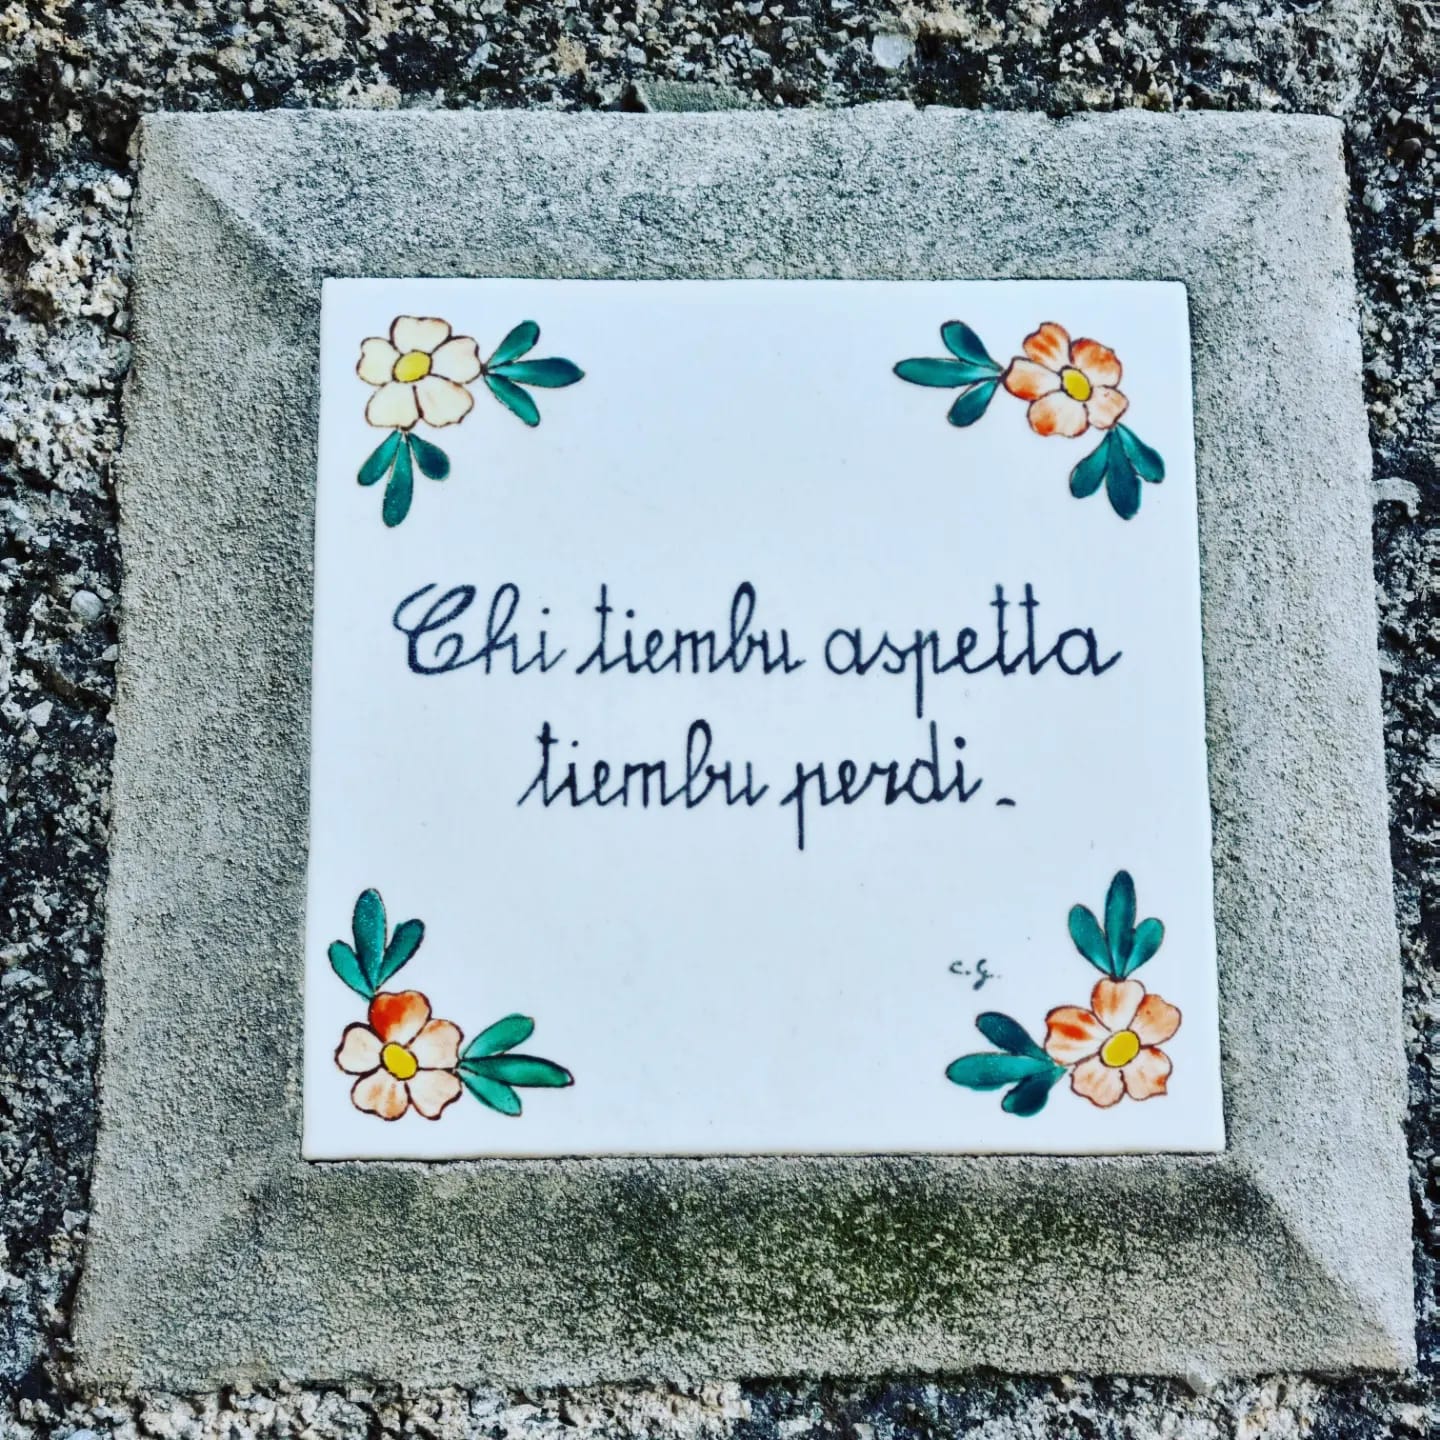 Chi tiembu aspetta
tiembu perdi.
C.G.